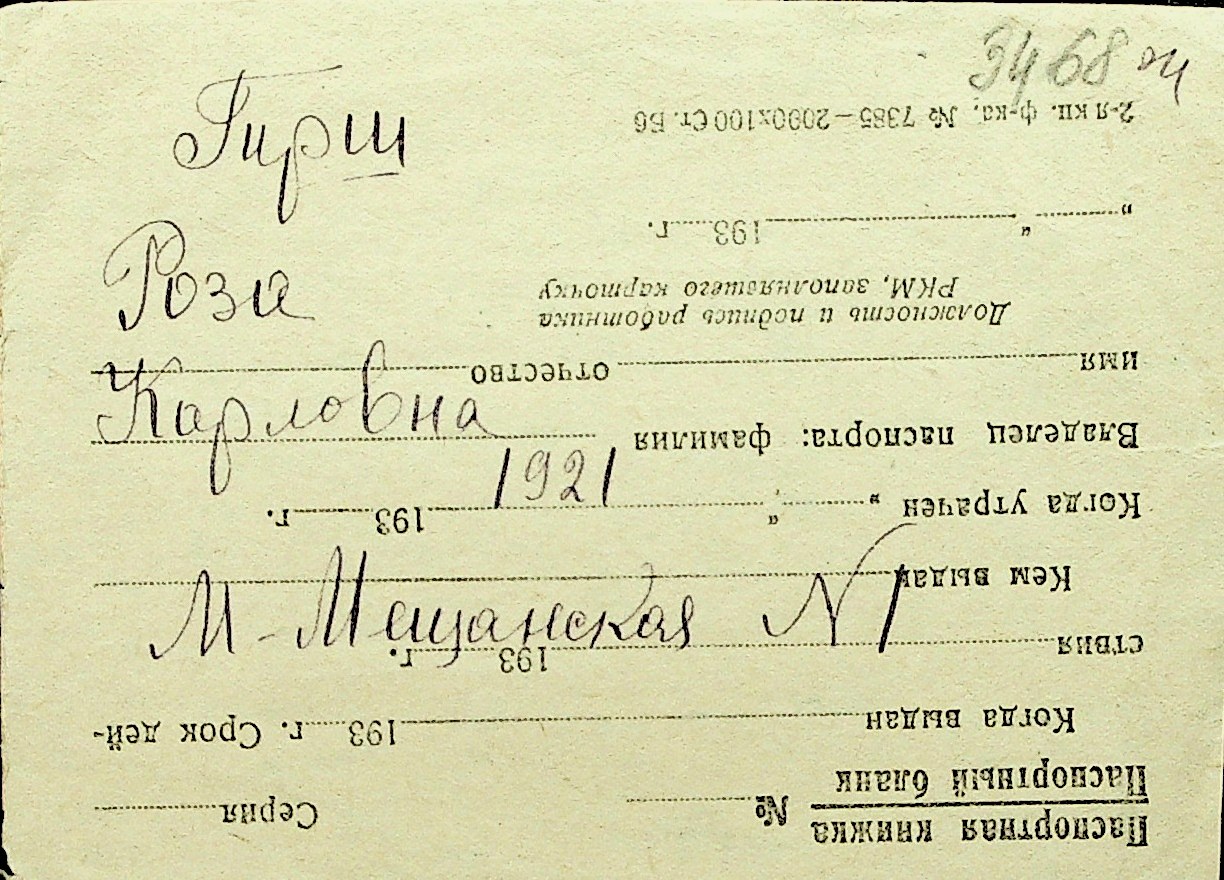 3468
Гирш
Роза
Карловна
1921
М-Мещанская N 1
Паспортная книжка № Серия
Паспортный бланк
Когда выдан 193 г. Срок дей-
ствия 193 г.
Кем выдан
Когда утрачен „ “ 193 г.
Владелец паспорта: фамилия
имя отчество
Должность и подпись работника
РКМ, заполнявшего карточку
„ “ 193 г.
2-я кн. ф-ка, № 7385—2000х100 Ст. Бб